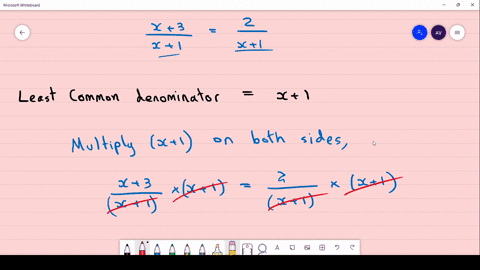 Microsoft Whiteboard
x+3 / x+1 = 2 / x+1
Least Common denominator = x+1
Multiply (x+1) on both sides,
x+3 / (x+1) × (x+1) = 2 / (x+1) × (x+1)